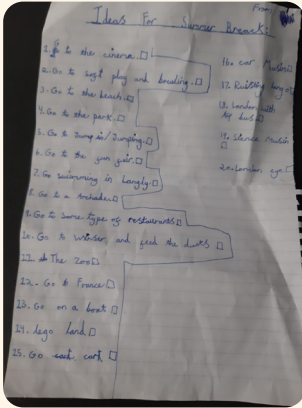 Ideas For Summer Break:
From
1. to the cinema
2. Go to soft play and bowling.
3. Go to the beach.
4. Go to the park.
5. Go to Jump in/Jumping.
6. Go to the fun fair.
7. Go swimming in Langly.
8. Go to a
9. Go to some type of restaurants
10. Go to winser and feed the ducks
11. The Zoo
12. Go to France
13. Go on a boat
14. Lego land
15. Go cart
16. car
17.
18. London with
19. Sience
20. London eye